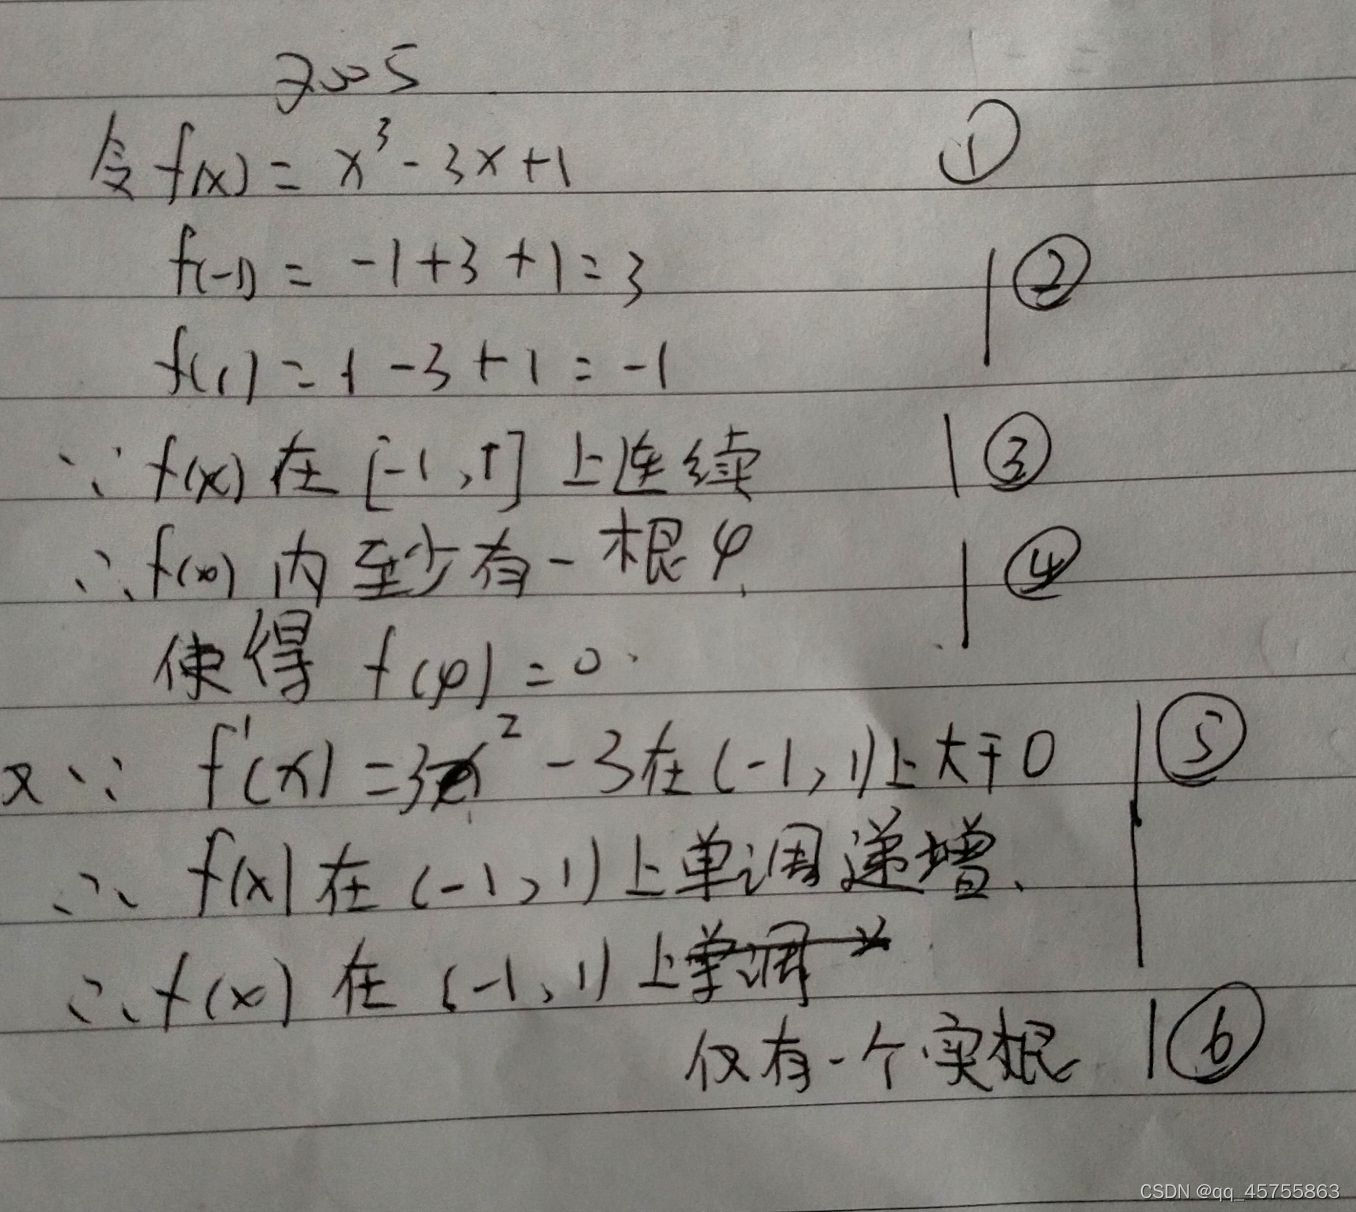 2005
令 f(x) = x³ - 3x + 1 ①
f(-1) = -1 + 3 + 1 = 3 ②
f(1) = 1 - 3 + 1 = -1
∵ f(x) 在 [-1, 1] 上连续 ③
∴ f(x) 内至少有一根 φ ④
使得 f(φ) = 0.
又∵ f'(x) = 3x² - 3 在 (-1, 1) 上大于0 ⑤
∴ f(x) 在 (-1, 1) 上单调递增.
∴ f(x) 在 (-1, 1) 上
仅有一个实根 ⑥
CSDN @qq_45755863